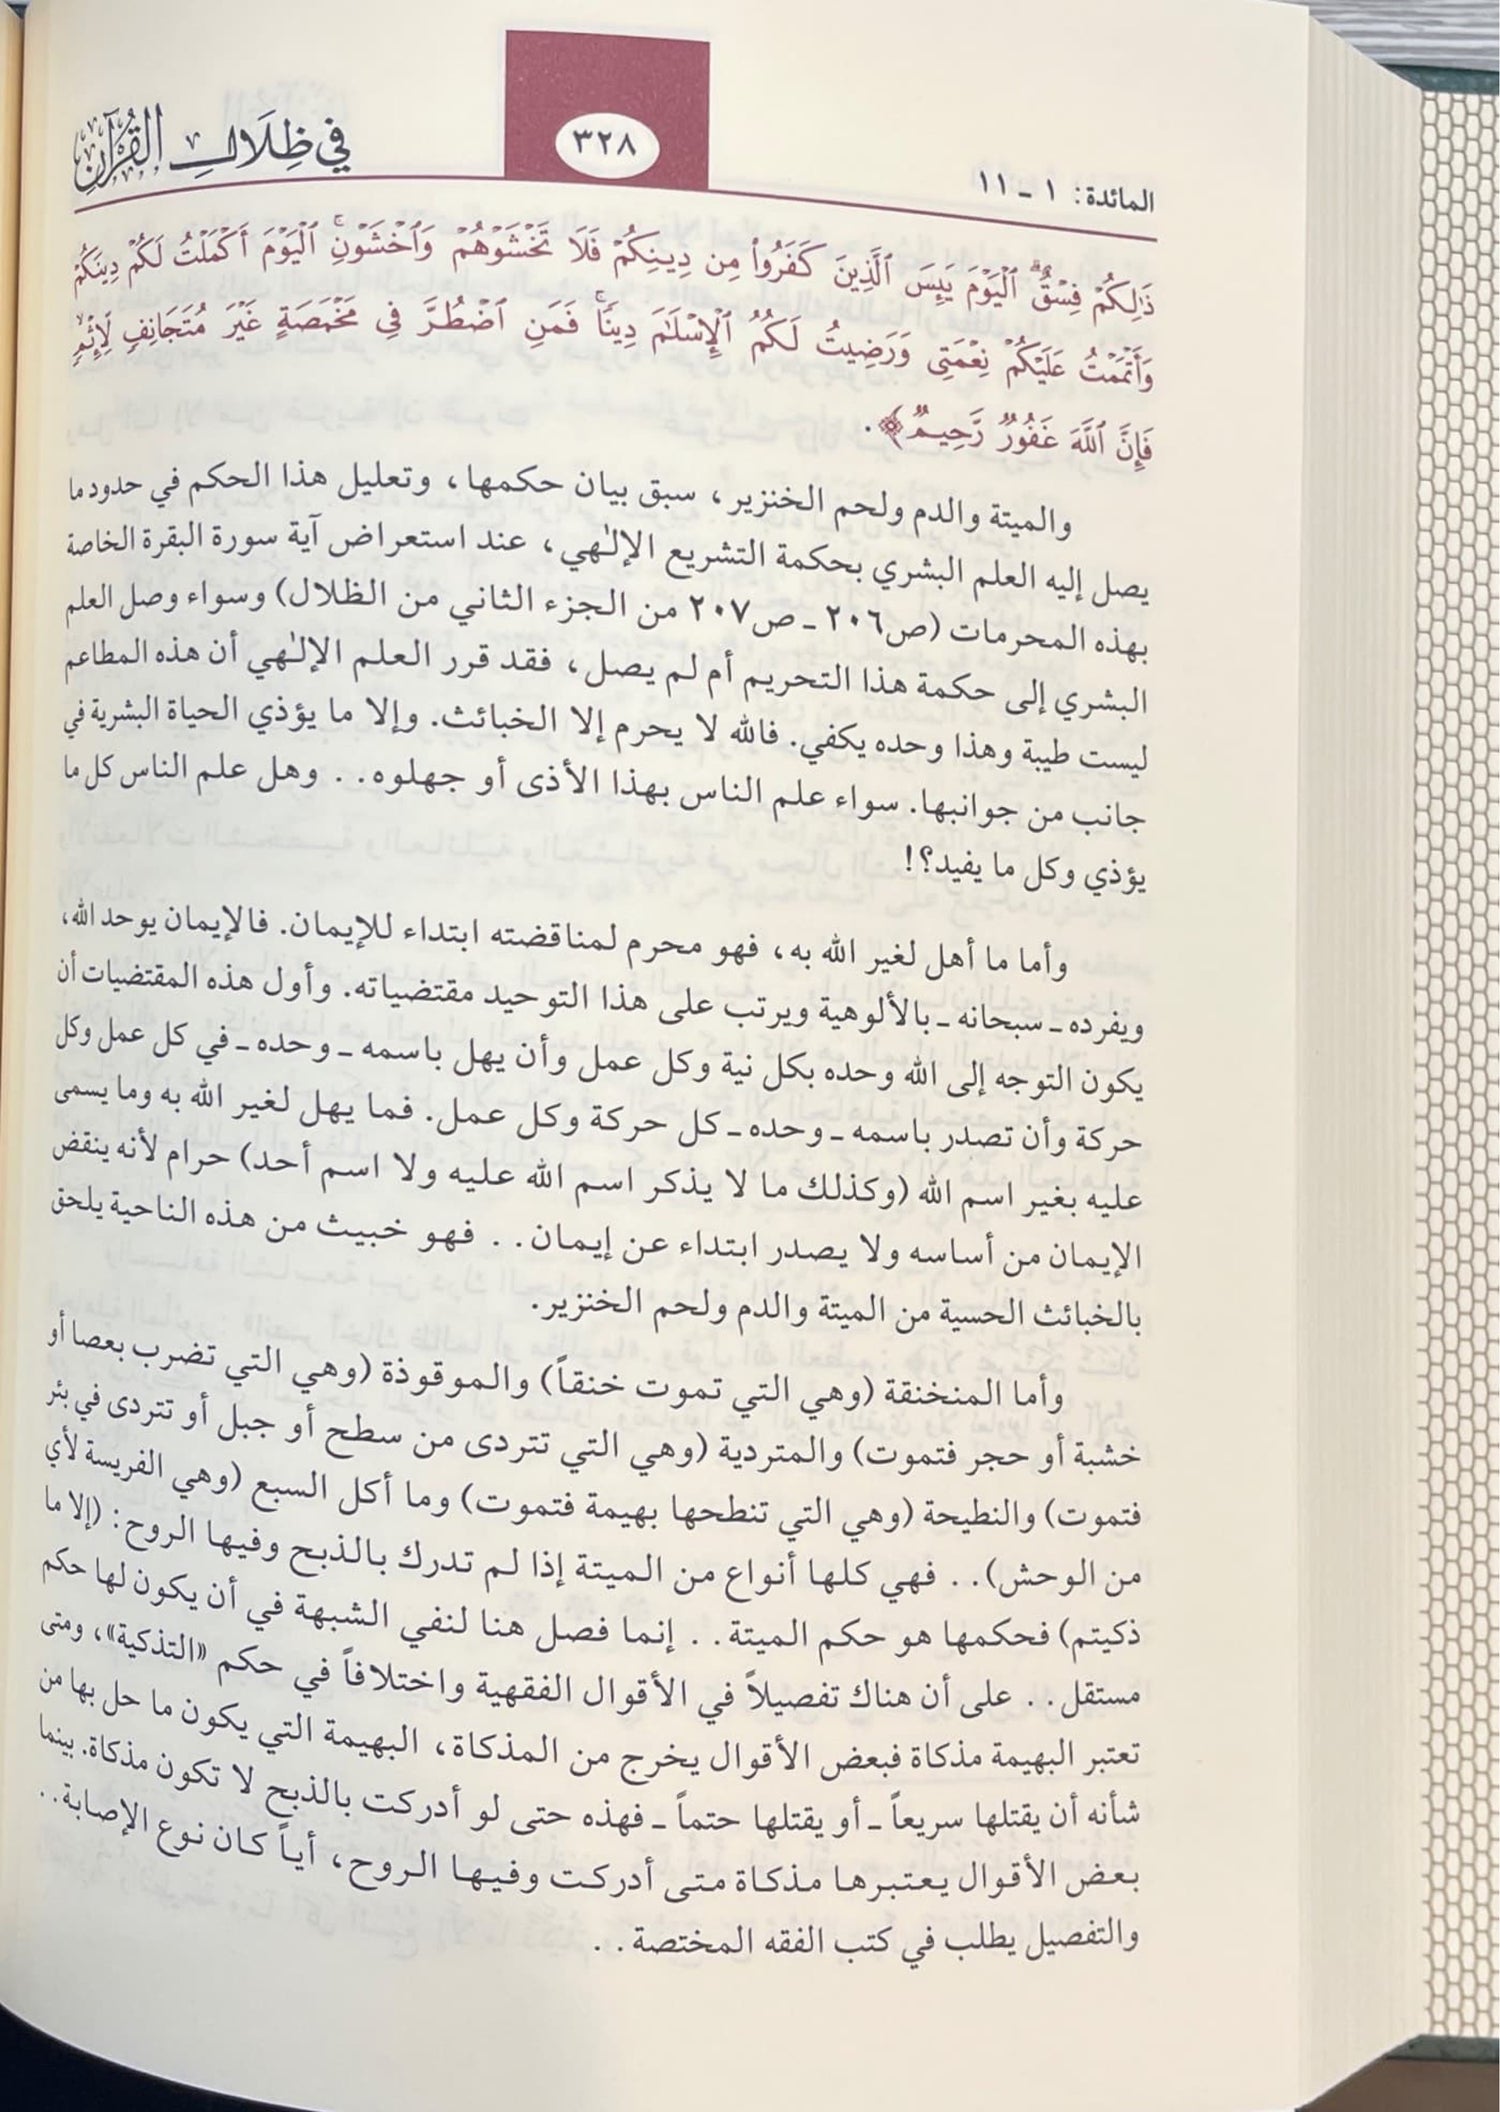 المائدة: ١ ـ ١١
٣٢٨
في ظِلَالِ القُرْآنِ
ذَٰلِكُمْ فِسْقٌ ۗ ٱلْيَوْمَ يَئِسَ ٱلَّذِينَ كَفَرُوا۟ مِن دِينِكُمْ فَلَا تَخْشَوْهُمْ وَٱخْشَوْنِ ۚ ٱلْيَوْمَ أَكْمَلْتُ لَكُمْ دِينَكُمْ
وَأَتْمَمْتُ عَلَيْكُمْ نِعْمَتِى وَرَضِيتُ لَكُمُ ٱلْإِسْلَٰمَ دِينًا ۚ فَمَنِ ٱضْطُرَّ فِى مَخْمَصَةٍ غَيْرَ مُتَجَانِفٍ لِّإِثْمٍ ۙ
فَإِنَّ ٱللَّهَ غَفُورٌ رَّحِيمٌ﴾.
والميتة والدم ولحم الخنزير، سبق بيان حكمها، وتعليل هذا الحكم في حدود ما
يصل إليه العلم البشري بحكمة التشريع الإلٰهي، عند استعراض آية سورة البقرة الخاصة
بهذه المحرمات (ص٢٠٦ ـ ص٢٠٧ من الجزء الثاني من الظلال) وسواء وصل العلم
البشري إلى حكمة هذا التحريم أم لم يصل، فقد قرر العلم الإلٰهي أن هذه المطاعم
ليست طيبة وهذا وحده يكفي. فالله لا يحرم إلا الخبائث. وإلا ما يؤذي الحياة البشرية في
جانب من جوانبها. سواء علم الناس بهذا الأذى أو جهلوه.. وهل علم الناس كل ما
يؤذي وكل ما يفيد؟!
وأما ما أهل لغير الله به، فهو محرم لمناقضته ابتداء للإيمان. فالإيمان يوحد الله،
ويفرده ـ سبحانه ـ بالألوهية ويرتب على هذا التوحيد مقتضياته. وأول هذه المقتضيات أن
يكون التوجه إلى الله وحده بكل نية وكل عمل وأن يهل باسمه ـ وحده ـ في كل عمل وكل
حركة وأن تصدر باسمه ـ وحده ـ كل حركة وكل عمل. فما يهل لغير الله به وما يسمى
عليه بغير اسم الله (وكذلك ما لا يذكر اسم الله عليه ولا اسم أحد) حرام لأنه ينقض
الإيمان من أساسه ولا يصدر ابتداء عن إيمان.. فهو خبيث من هذه الناحية يلحق
بالخبائث الحسية من الميتة والدم ولحم الخنزير.
وأما المنخنقة (وهي التي تموت خنقاً) والموقوذة (وهي التي تضرب بعصا أو
خشبة أو حجر فتموت) والمتردية (وهي التي تتردى من سطح أو جبل أو تتردى في بئر
فتموت) والنطيحة (وهي التي تنطحها بهيمة فتموت) وما أكل السبع (وهي الفريسة لأي
من الوحش).. فهي كلها أنواع من الميتة إذا لم تدرك بالذبح وفيها الروح: (إلا ما
ذكيتم) فحكمها هو حكم الميتة.. إنما فصل هنا لنفي الشبهة في أن يكون لها حكم
مستقل.. على أن هناك تفصيلاً في الأقوال الفقهية واختلافاً في حكم «التذكية»، ومتى
تعتبر البهيمة مذكاة فبعض الأقوال يخرج من المذكاة، البهيمة التي يكون ما حل بها من
شأنه أن يقتلها سريعاً ـ أو يقتلها حتماً ـ فهذه حتى لو أدركت بالذبح لا تكون مذكاة. بينما
بعض الأقوال يعتبرها مذكاة متى أدركت وفيها الروح، أياً كان نوع الإصابة..
والتفصيل يطلب في كتب الفقه المختصة..